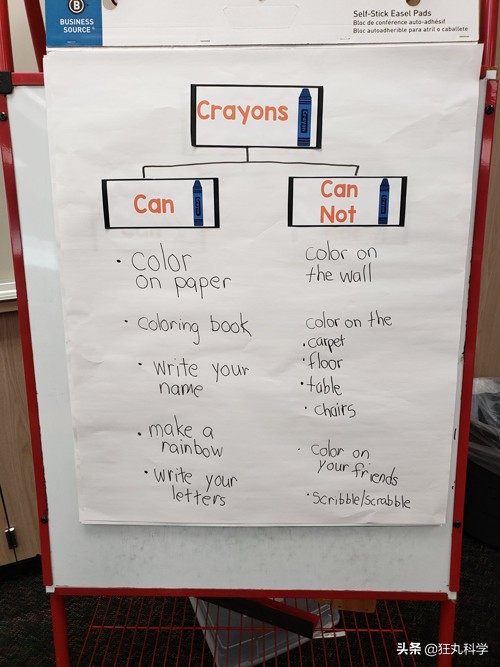 B
BUSINESS
SOURCE®
Self-Stick Easel Pads
Bloc de conférence auto-adhésif
Bloc autoadherible para atril o caballete
Crayons
Can
• Color
on paper
• coloring book
• write your
name
• make a
rainbow
• write your
letters
Can
Not
color on
the wall
color on the
• carpet
• floor
• table
• chairs
• color on
your friends
• Scribble/scrabble
头条 @狂丸科学